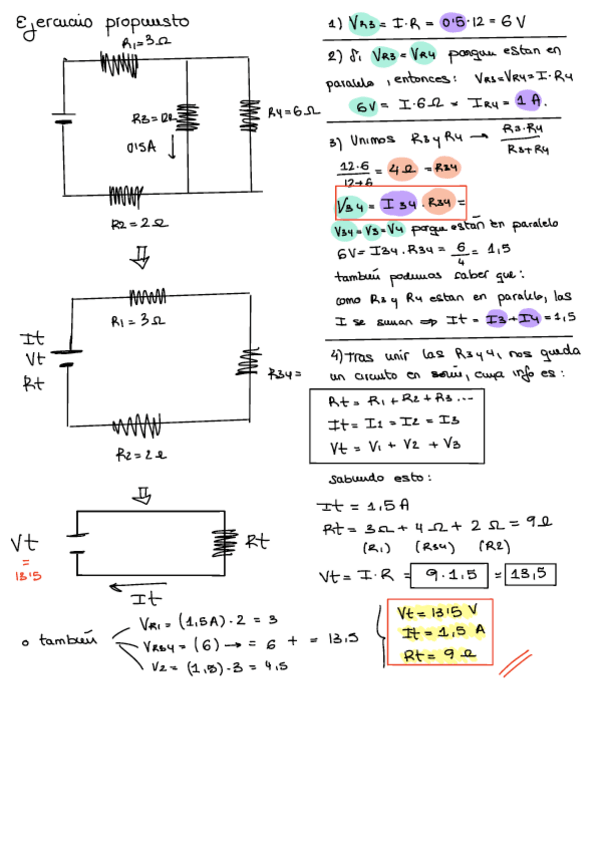 Ejercicio propuesto
R1=3Ω
R3=12Ω
0'5A
R4=6Ω
R2=2Ω
It
Vt
Rt
R1=3Ω
R34=
R2=2Ω
Vt
=
13'5
Rt
It
o también
VR1=(1,5A)·2=3
VR34=(6)→=6 + = 13,5
V2=(1,5)·3=4,5
1) VR3=I·R=0'5·12=6V
2) Si VR3=VR4 porque estan en
paralelo, entonces: VR3=VR4=I·R4
6V=I·6Ω = IR4=1A.
3) Unimos R3 y R4 → R3·R4
R3+R4
12·6
12+6
=4Ω=R34
V34=I34·R34=
V34=V3=V4 porque están en paralelo
6V=I34·R34=6/4=1,5
también podemos saber que:
como R3 y R4 estan en paralelo, las
I se suman ⇒ It=I3+I4=1,5
4) tras unir las R3 y 4, nos queda
un circuito en serie, cuya info es:
Rt=R1+R2+R3...
It=I1=I2=I3
Vt=V1+V2+V3
Sabiendo esto:
It=1,5A
Rt=3Ω+4Ω+2Ω=9Ω
(R1) (R34) (R2)
Vt=I·R=9·1,5=13,5
Vt=13'5 V
It=1,5 A
Rt=9Ω